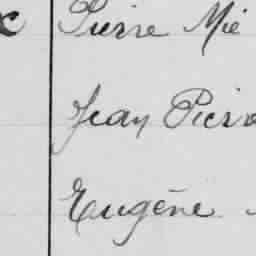 Pierre Mie
Jean Pier
Eugène